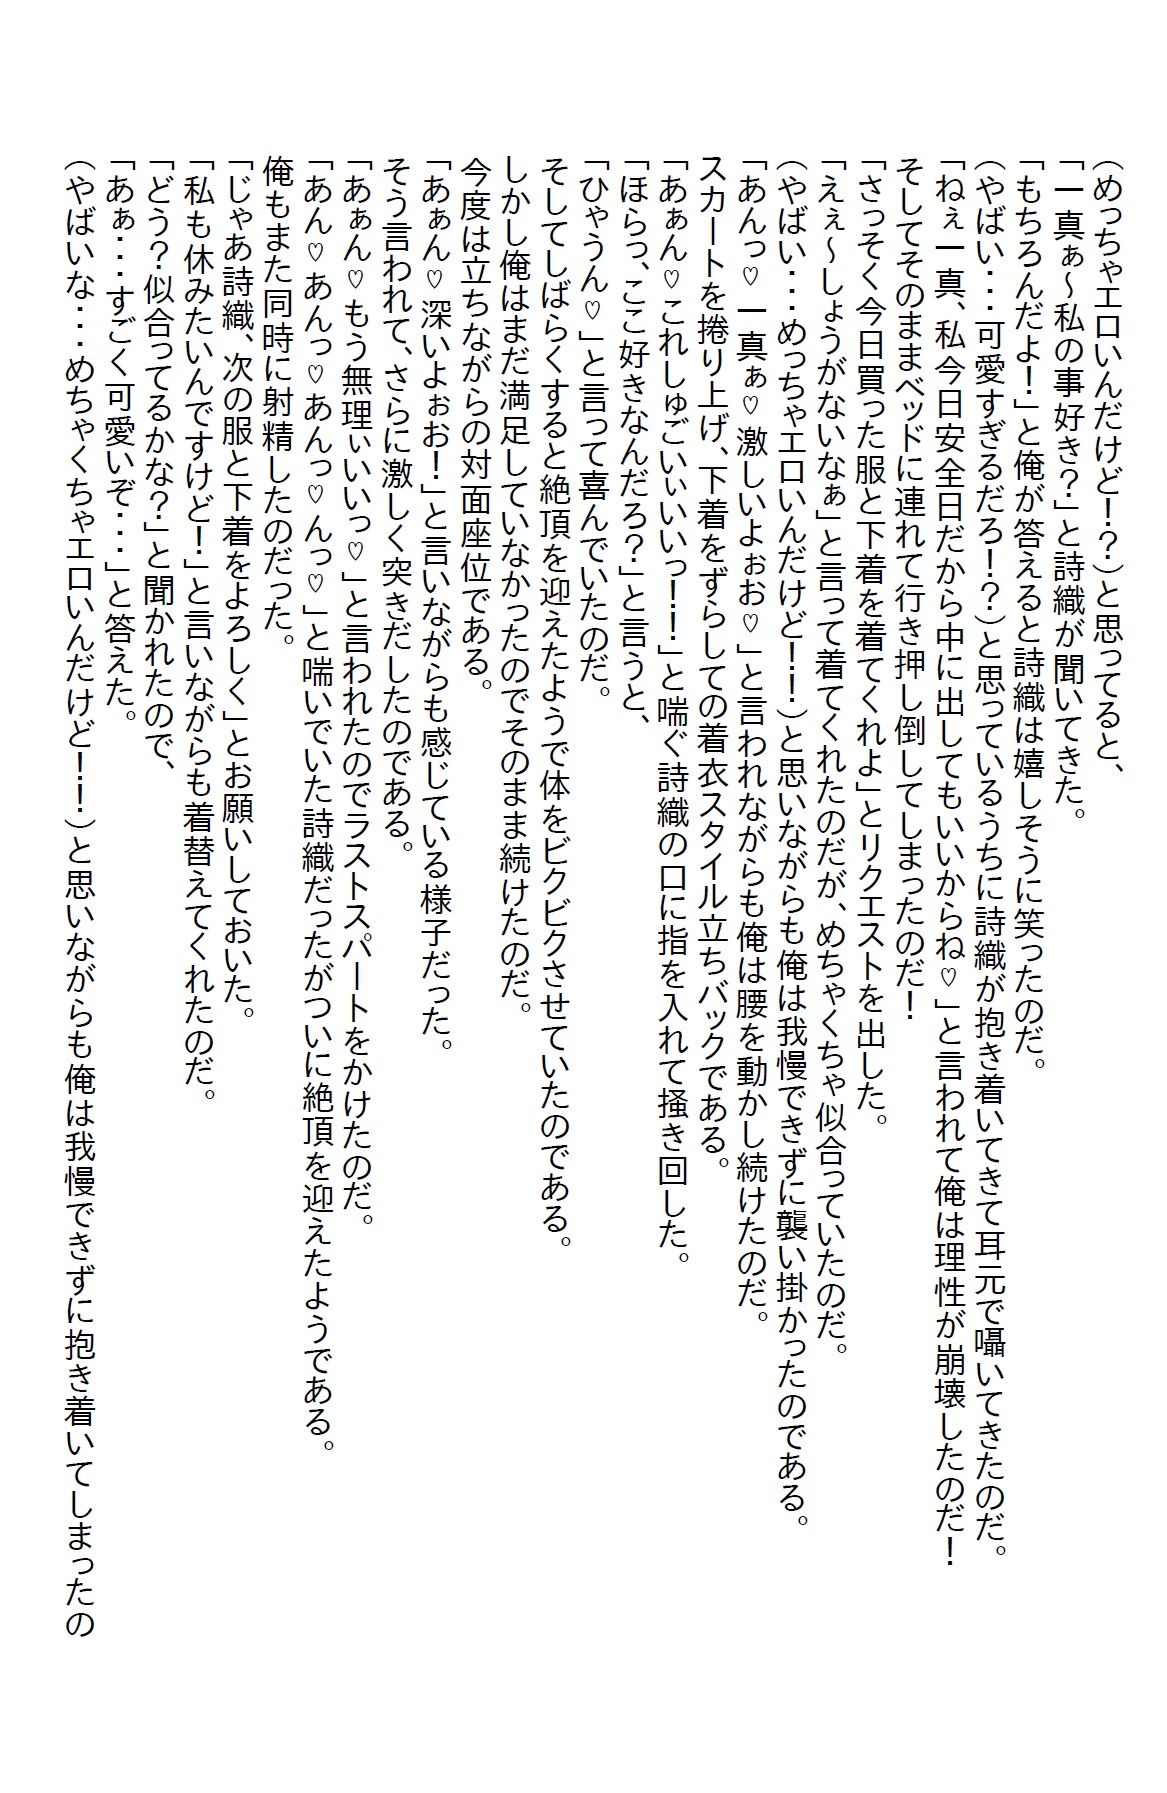 （めっちゃエロいんだけど！？）と思ってると、
「一真ぁ～私の事好き？」と詩織が聞いてきた。
「もちろんだよ！」と俺が答えると詩織は嬉しそうに笑ったのだ。
（やばい・・・可愛すぎるだろ！？）と思っているうちに詩織が抱き着いてきて耳元で囁いてきたのだ。
「ねぇ一真、私今日安全日だから中に出してもいいからね♡」と言われて俺は理性が崩壊したのだ！
そしてそのままベッドに連れて行き押し倒してしまったのだ！
「さっそく今日買った服と下着を着てくれよ」とリクエストを出した。
「えぇ～しょうがないなぁ」と言って着てくれたのだが、めちゃくちゃ似合っていたのだ。
（やばい・・・めっちゃエロいんだけど！！）と思いながらも俺は我慢できずに襲い掛かったのである。
「あんっ♡一真ぁ♡激しいよぉお♡」と言われながらも俺は腰を動かし続けたのだ。
スカートを捲り上げ、下着をずらしての着衣スタイル立ちバックである。
「あぁん♡これしゅごいぃいいっ！！」と喘ぐ詩織の口に指を入れて掻き回した。
「ほらっ、ここ好きなんだろ？」と言うと、
「ひゃうん♡」と言って喜んでいたのだ。
そしてしばらくすると絶頂を迎えたようで体をビクビクさせていたのである。
しかし俺はまだ満足していなかったのでそのまま続けたのだ。
今度は立ちながらの対面座位である。
「あぁん♡深いよぉお！」と言いながらも感じている様子だった。
そう言われて、さらに激しく突きだしたのである。
「あぁん♡もう無理ぃいいっ♡」と言われたのでラストスパートをかけたのだ。
「あん♡あんっ♡あんっ♡んっ♡」と喘いでいた詩織だったがついに絶頂を迎えたようである。
俺もまた同時に射精したのだった。
「じゃあ詩織、次の服と下着をよろしく」とお願いしておいた。
「私も休みたいんですけど！」と言いながらも着替えてくれたのだ。
「どう？似合ってるかな？」と聞かれたので、
「あぁ・・・すごく可愛いぞ・・・」と答えた。
（やばいな・・・めちゃくちゃエロいんだけど！！）と思いながらも俺は我慢できずに抱き着いてしまったの